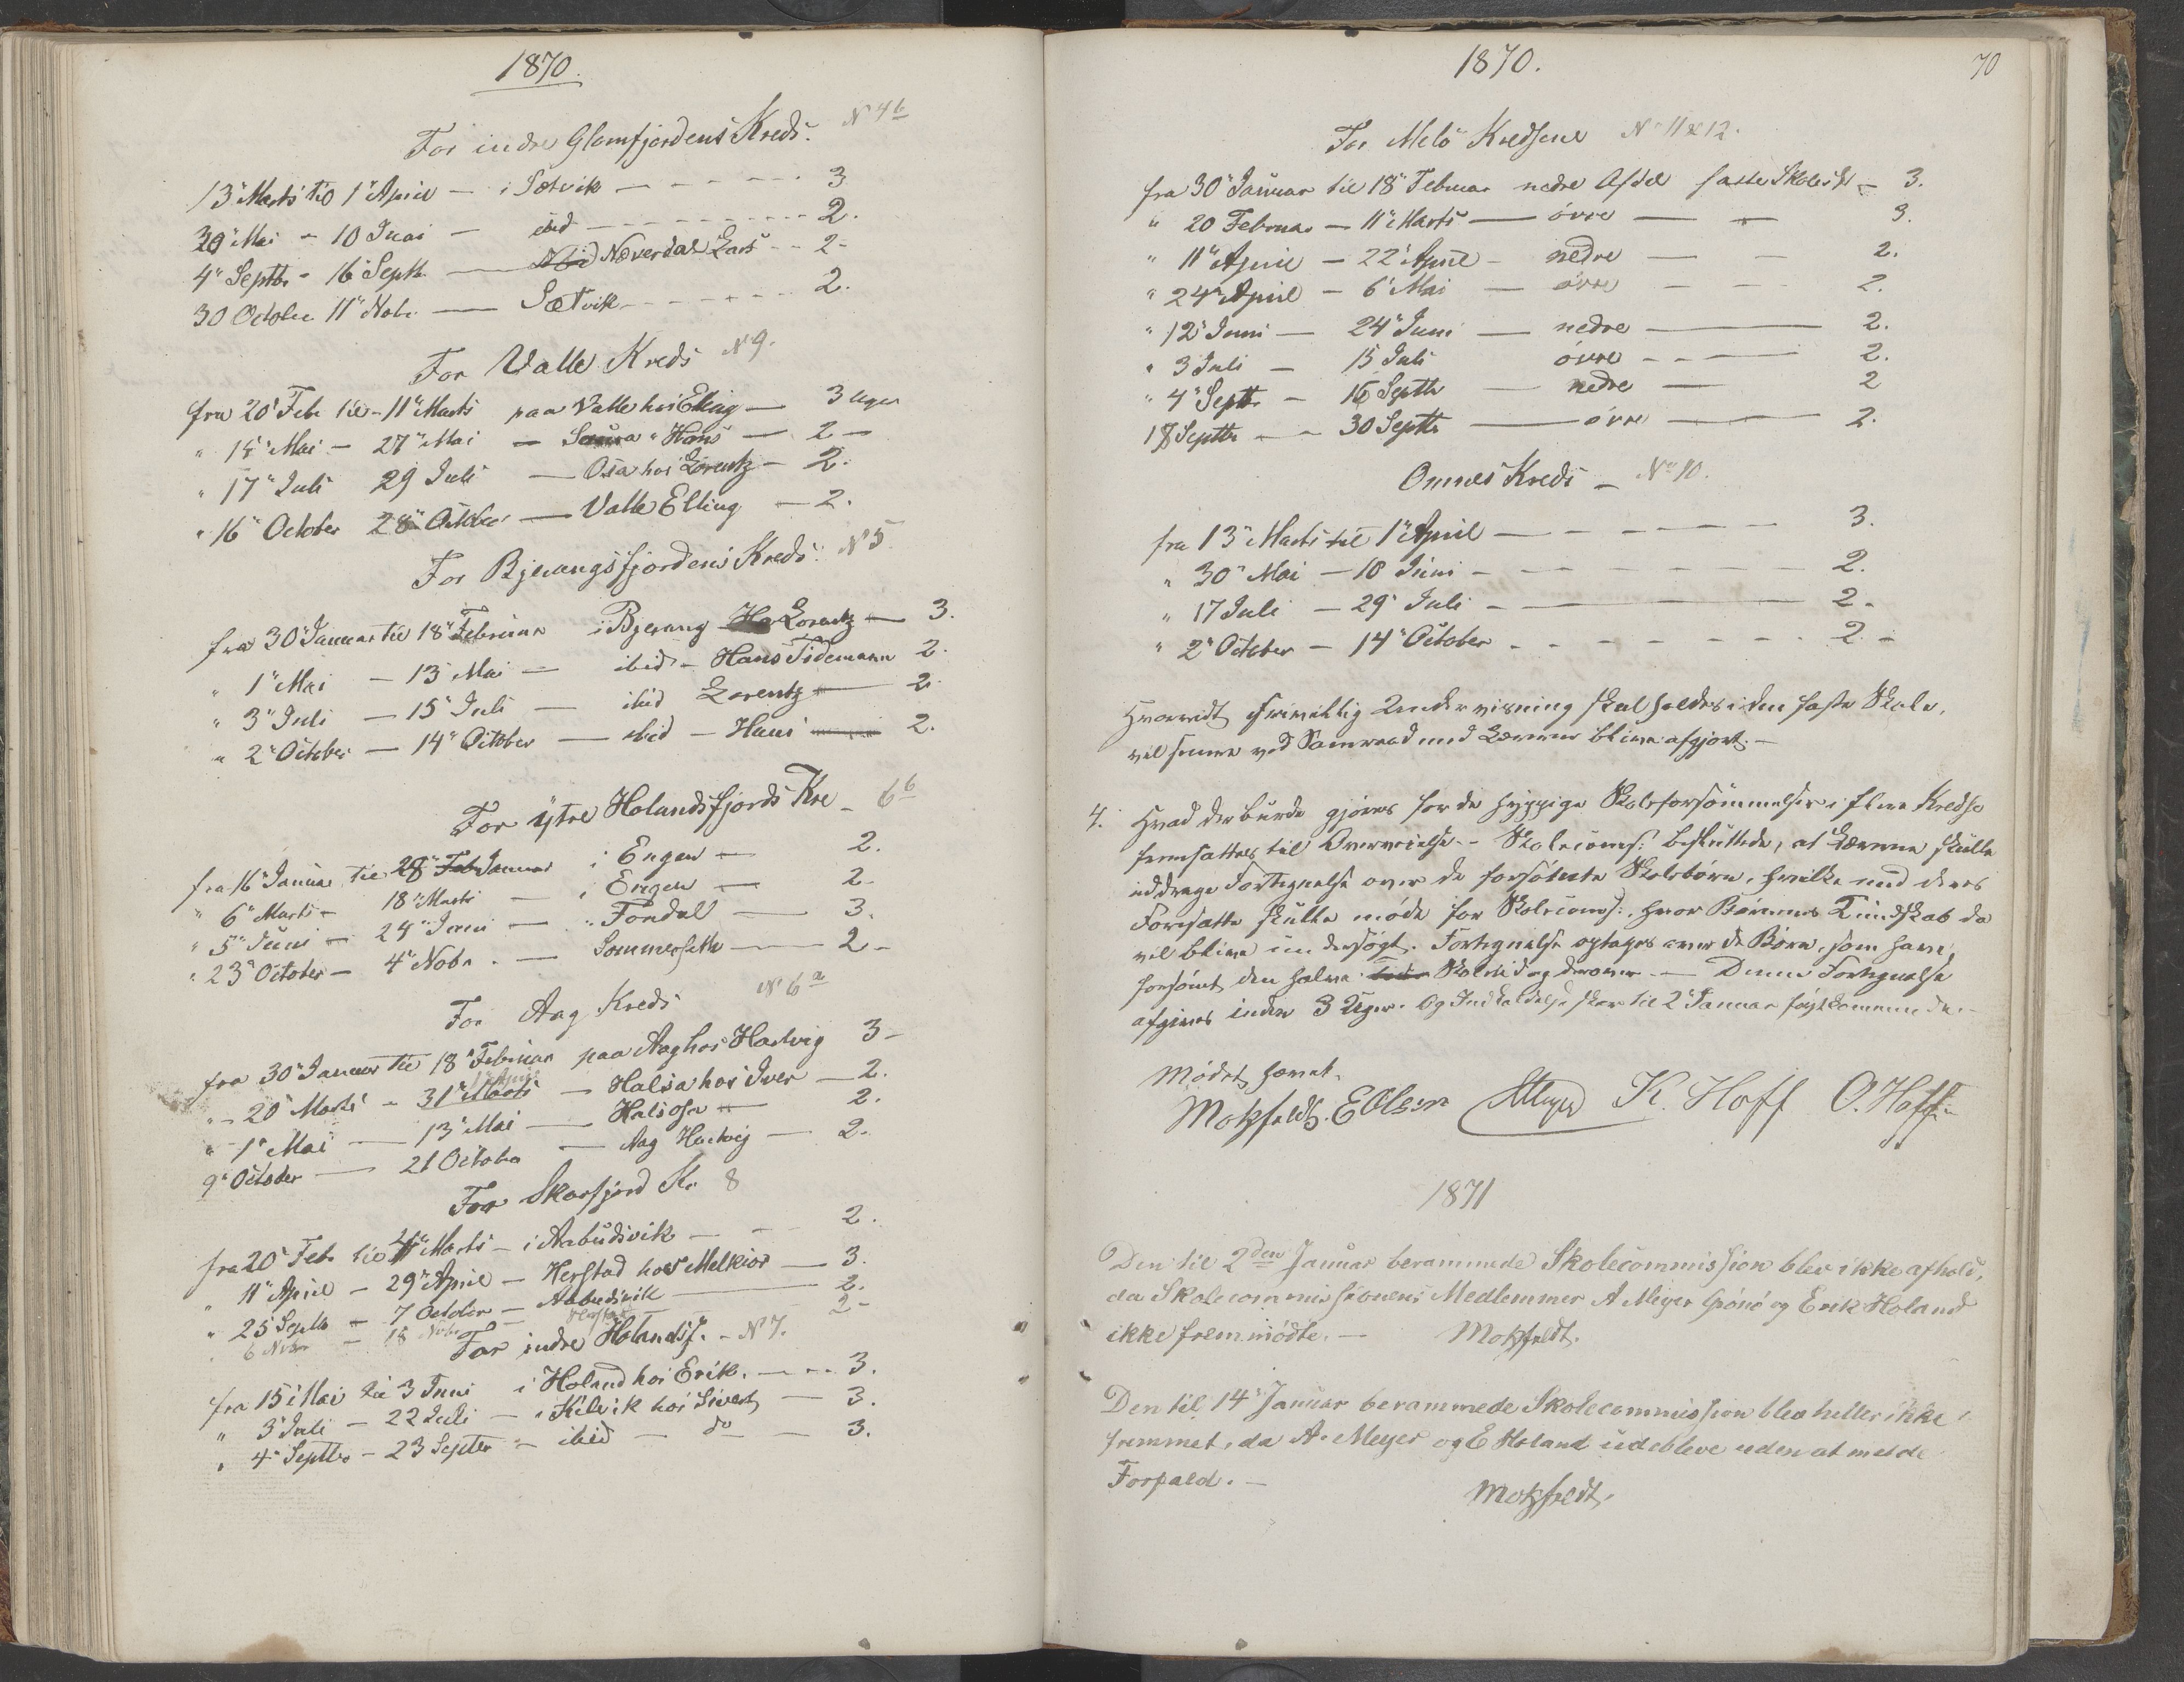 1870.
For indre Glomfjordens Kreds. N 4b
13" Marts til 1" April — i Sætvik — 3
30" Mai - 10 Juni — ibid — 2.
4" Septbr - 16 Septb. — Neverdal Lars — 2-
30 October 11" Nobr — Sætvik — 2.
For Valle Kreds N 9.
fra 20" Feb. til - 11" Marts paa Valle hos Elling — 3 Uger
" 15" Mai — 27" Mai — Hans — 2 —
" 17" Juli 29 Juli — Osa hos Lorentz — 2.
" 16" October 28" October — Valle Elling — 2.
For Bjerangsfjordens Kreds. N 5.
fra 30" Januar til 18" Februar i Bjerang Lorentz — 3.
" 1" Mai — 13" Mai — ibid - Hans Tidemann 2.
" 3" Juli — 15" Juli — ibid Lorentz — 2.
" 2" October — 14" October — ibid — Hans — 2.
For ytre Holandsfjords Kre - 6b
fra 16" Januar til 28" Feb Januar i Engen — 2.
" 6" Marts - 18" Marts — i Engen — 2-
" 5" Juni — 24" Juni — " Fondal — 3.
" 23" October — 4" Nobr. — Sommerseth — 2 -
For Aag Kreds N 6a
fra 30" Januar til 18" Februar paa Aag hos Hartvig 3-
1" April
" - 20" Marts - 31" Marts — Halsa hos Iver — 2.
" 1" Mai — 13" Mai — Halsosa — 2.
9" October — 21 October — Aag Hartvig — 2.
For Skarsfjord Kr. 8
fra 20" Feb. til 4" Marts — i Aabudsvik — 2.
" 11" April — 29" April — Herstad hos Melkior — 3.
" 25 Septb — 7 October — Aabudsvik — 2.
" 6 Nobr — 18 Nobr Herstad 2-
For indre Holandsf. - N 7.
fra 15 Mai til 3 Juni i Holand hos Erik. — 3.
" 3" Juli — 22 Juli — i Kilvik hos Sivert — 3.
" 4" Septbr. - 23 Septbr — ibid — do — 3.
1870. 70
For Melö Kredsene No 11 & 12.
fra 30" Januar til 18" Februar nedre Afdel faste Skole — 3.
" 20 Februar — 11" Marts — övre — 3.
" 11" April — 22" April — nedre — 2.
" 24" April — 6" Mai — övre — 2.
" 12" Juni — 24" Juni — nedre — 2.
" 3 Juli — 15 Juli övre — 2.
" 4" Septb. — 16 Septbr — nedre — 2
18 Septbr — 30 Septbr — övre — 2.
Omnes Kreds — No 10.
fra 13" Marts til 1" April — 3.
" 30" Mai — 10 Juni — 2.
" 17 Juli — 29" Juli — 2.
" 2" October — 14" October — 2. -
Hvorvidt frivillig Undervisning skal holdes i den faste Skole,
vil senere ved Samraad med Læreren blive afgjort. —
4. Hvad der burde gjöres for de hyppige Skoleforsömmelser i flere Kredse
fremsattes til Overveielse. - Skolecoms: besluttede, at Lærerne skulle
inddrage Fortegnelse over de forsömte Skolebörn, hvilke med deres
Foresatte skulle möde for Skolecoms:, hvor Börnenes Kundskab da
vil blive undersögt. Fortegnelse optages over de Börn, som have
forsömt den halve Skoletid og derover. — Denne Fortegnelse
afgives inden 3 Uger. Og Indkaldelse sker til 2 Januar förstkommende. -
Mödet hævet.
Motzfeldt. E Olsen AMeyer K. Hoff O. Hoff
1871
Den til 2den Januar berammede Skolecommission blev ikke afholdt,
da Skolecommissionens Medlemmer A Meyer Grönö og Erik Holand
ikke fremmödte. — Motzfeldt.
Den til 14" Januar berammede Skolecommission blev heller ikke
fremmet, da A. Meyer og E Holand udebleve uden at melde
Forfald. — Motzfeldt.